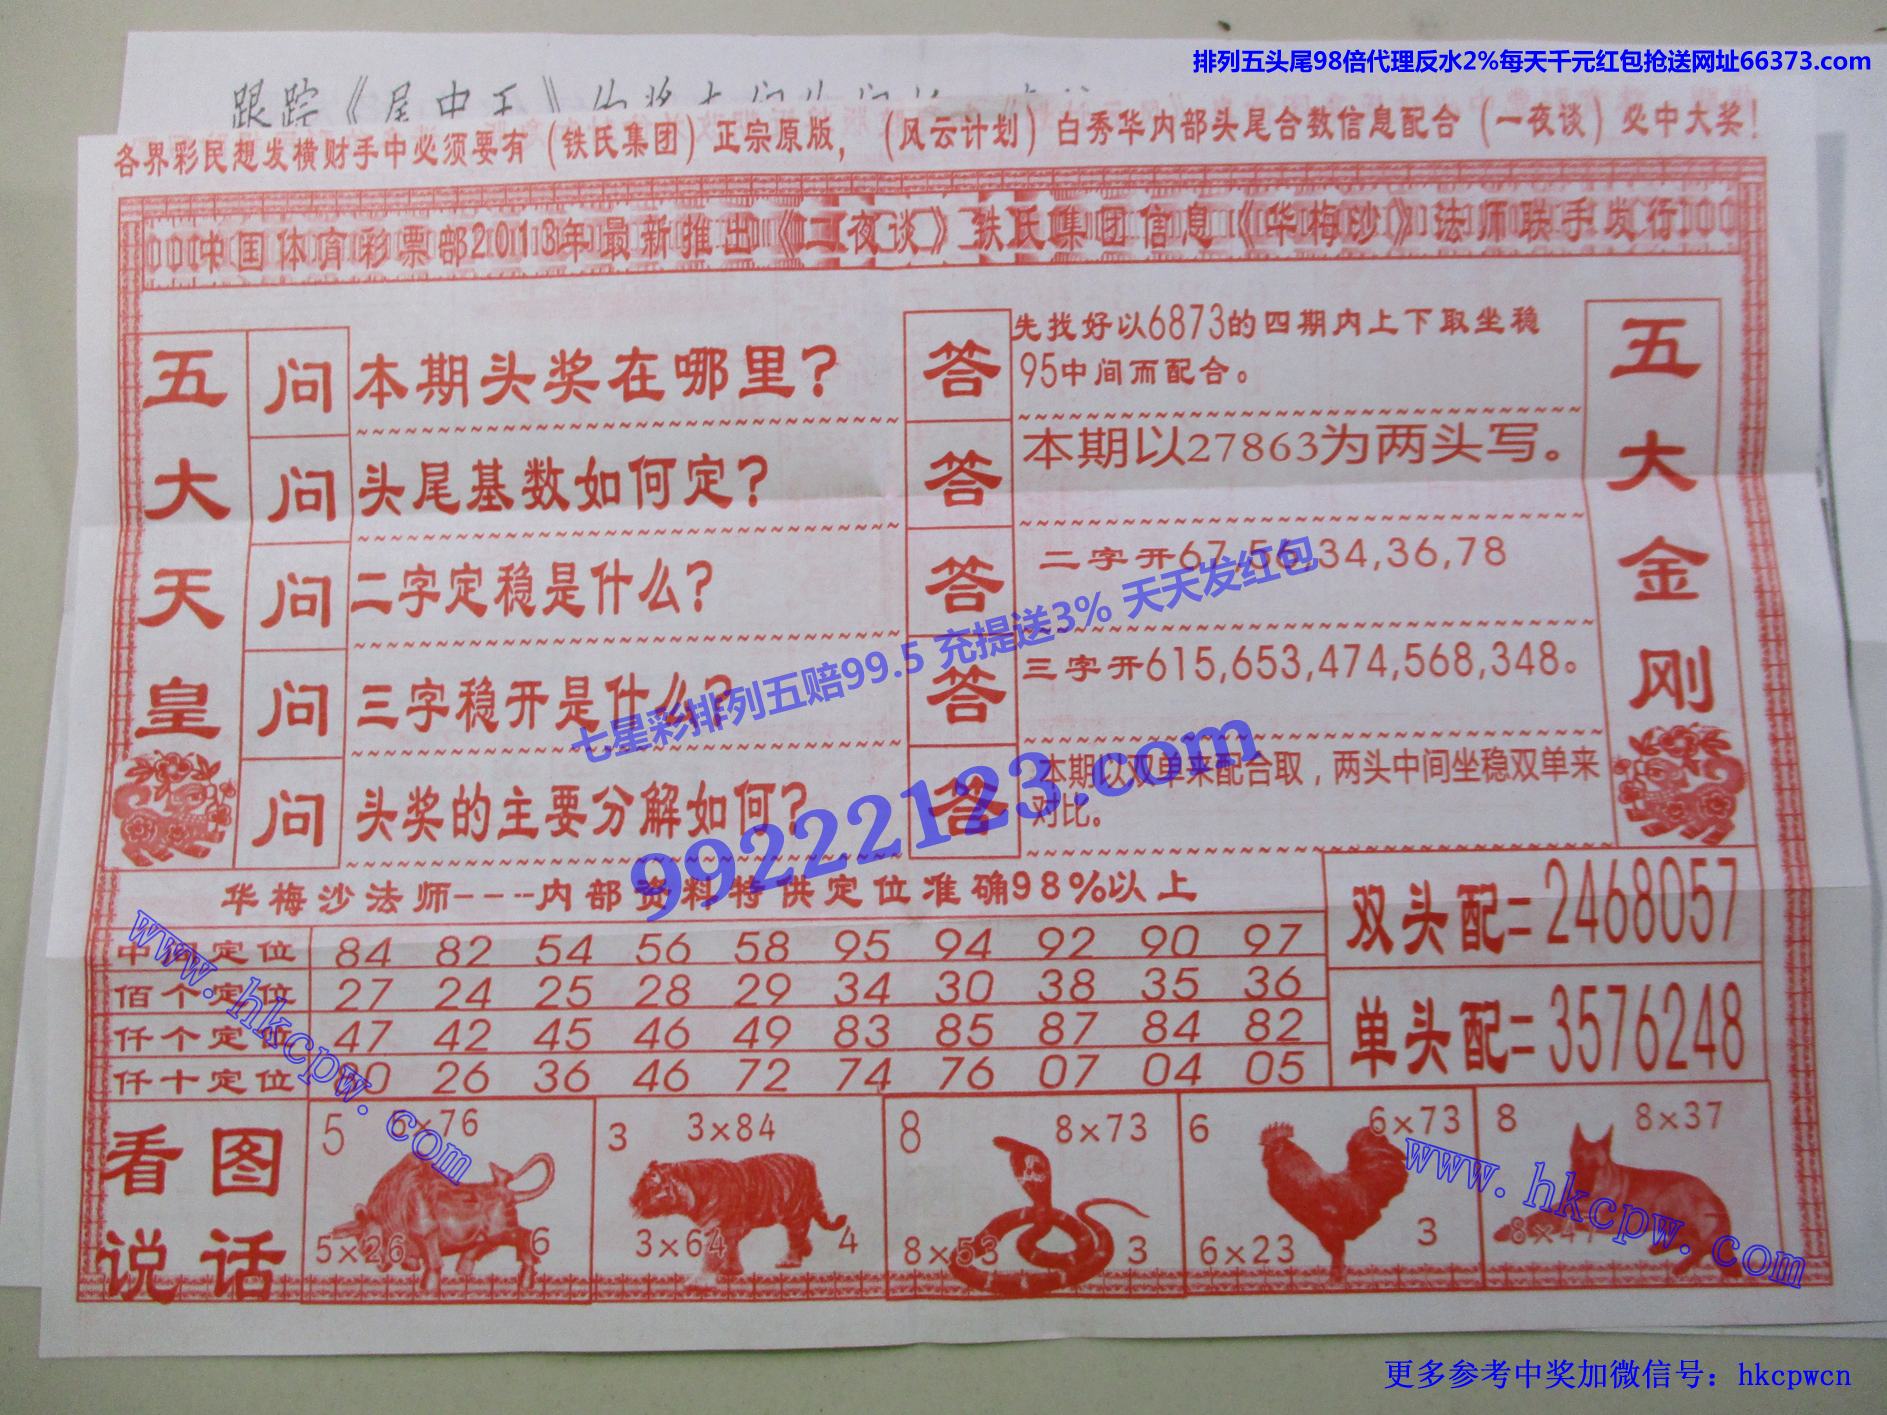 排列五头尾98倍代理反水2%每天千元红包抢送网址66373.com
跟踪《尾中王》
各界彩民想发横财手中必须要有（铁氏集团）正宗原版，（风云计划）白秀华内部头尾合数信息配合（一夜谈）必中大奖！
中国体育彩票部2013年最新推出《二夜谈》铁氏集团信息《华梅沙》法师联手发行
五大天皇
问 本期头奖在哪里？
答 先找好以6873的四期内上下取坐稳
95中间而配合。
问 头尾基数如何定？
答 本期以27863为两头写。
问 二字定稳是什么？
答 二字开67,56,34,36,78
问 三字稳开是什么？
答 三字开615,653,474,568,348。
问 头奖的主要分解如何？
答 本期以双单来配合取，两头中间坐稳双单来
对比。
五大金刚
七星彩排列五赔99.5 充提送3% 天天发红包
99222123.com
华梅沙法师----内部资料特供定位准确98%以上
中间定位 84 82 54 56 58 95 94 92 90 97
佰个定位 27 24 25 28 29 34 30 38 35 36
仟个定位 47 42 45 46 49 83 85 87 84 82
仟十定位 26 36 46 72 74 76 07 04 05
双头配=2468057
单头配=3576248
看图
说话
5 6×76
5×26 6
3 3×84
3×64 4
8 8×73
8×53 3
6 6×73
6×23 3
8 8×37
8×47
www.hkcpw.com
www.hkcpw.com
更多参考中奖加微信号：hkcpwcn